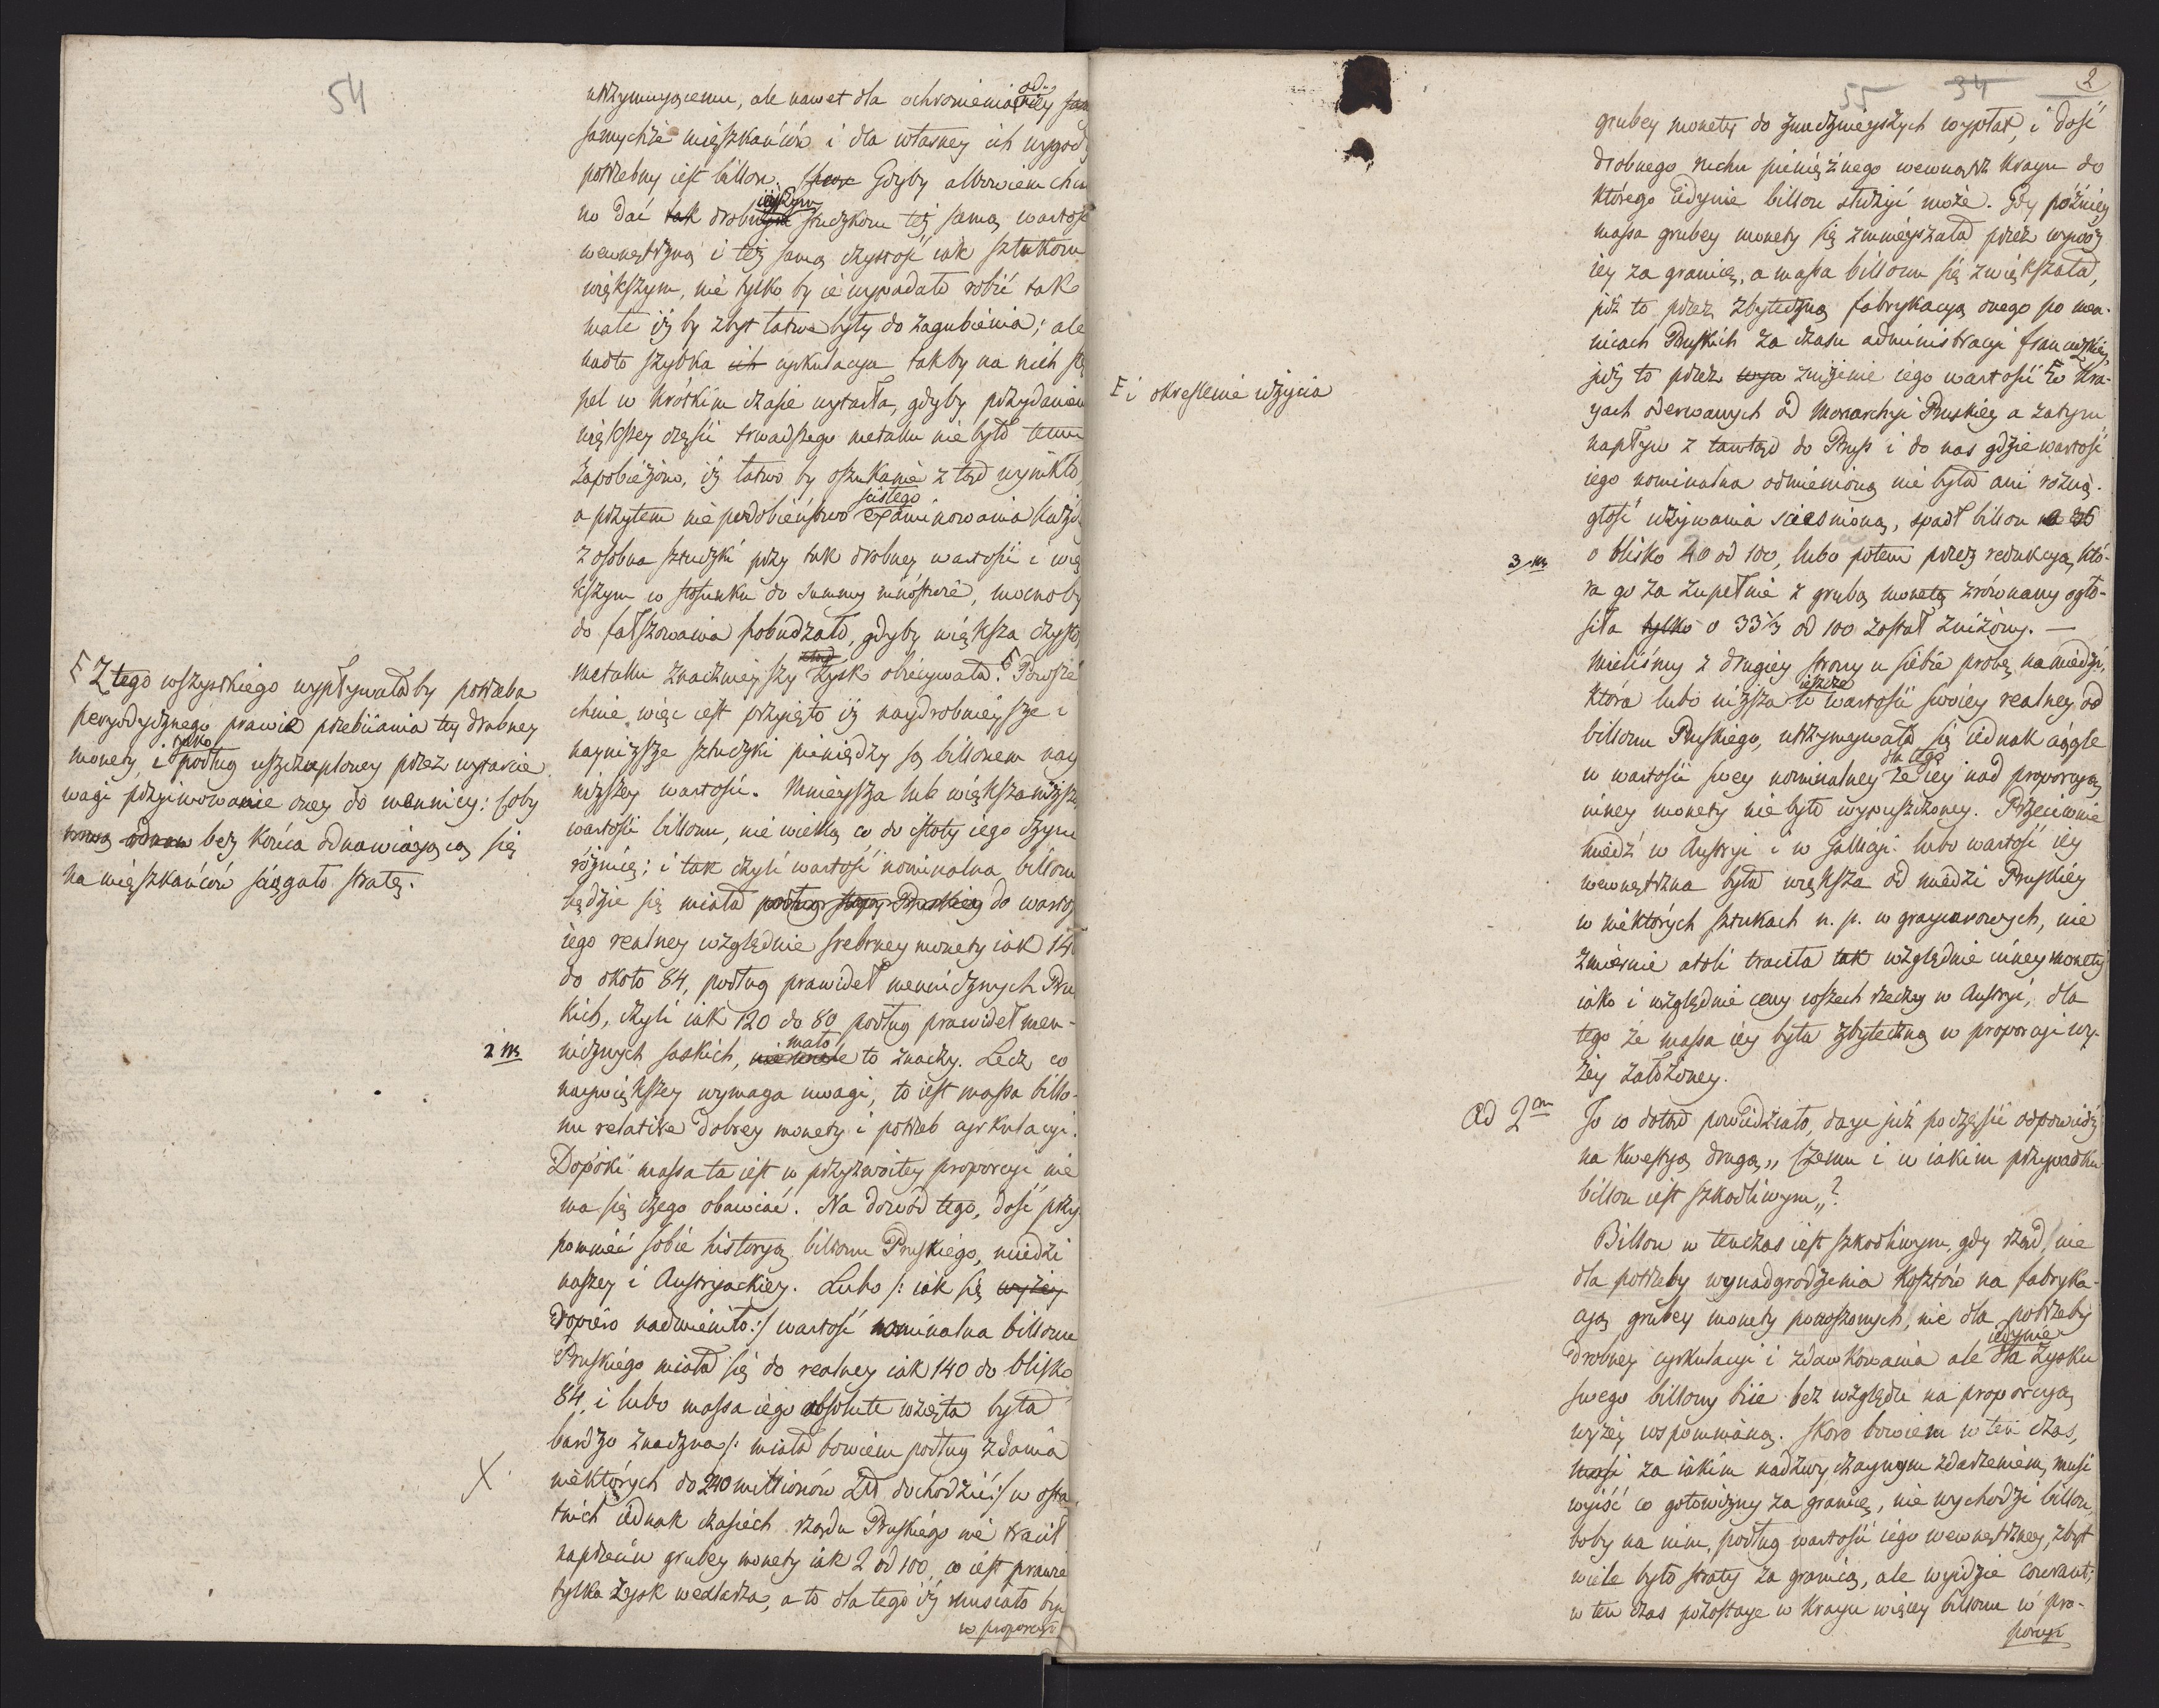 54
utrzymuiącemu, ale nawet dla ochronienia od
samychże mięszkańców i dla własney ich wygody
potrzebny iest billon. Gdyby albowiem chcia
no dać tak drobnym sztuczkom tęż samą wartość
wewnętrzną i tęż samą czystość iak sztukom
większym, nie tylko by ie wypadało robić tak
małe iż by zbyt łatwe były do zagubienia; ale
nadto szybka ich cyrkulacya takby na nich
pel w krótkim czasie wytarła, gdyby przydaniem
większey części twardszego metallu nie było temu
zapobieżono, iż łatwo by oszukanie z tąd wynikło,
a przytem niepodobieństwo ścisłego examinowania każdey
z osobna sztuczki przy tak drobney wartości i wię
kszym w stosunku do summy mnóstwie, mocnoby
do fałszowania pobudzało, gdyby większa czystość
metallu znacznieyszy zysk obiecywała. F Powsze
chnie więc iest przyięto iż naydrobnieysze i
nayniższe sztuczki pieniędzy są billonem nay
niższey wartości. Mnieysza lub większa niższość
wartości billonu, nie wielką co do istoty iego czyni
różnicę; i tak czyli wartość nominalna billonu
będzie się miała podług stopy Pruskiey do wartości
iego realney względnie srebrney monety iak 140
do około 84, podług prawideł menniczych Prus
kich, czyli iak 120 do 80 podług prawideł men-
2 m niczych saskich, mało to znaczy. Lecz co
naywiększey wymaga uwagi, to iest massa billo-
nu relative dobrey monety i potrzeb cyrkulacyi.
Dopóki massa ta iest w przyzwoitey proporcyi nie
ma się czego obawiać. Na dowód tego, dość przy
pomnieć sobie historyą billonu Pruskiego, miedzi
naszey i Austryackiey. Lubo /: iak się wyżey
dopiero nadmieniło :/ wartość nominalna billonu
Pruskiego miała się do realney iak 140 do blisko
84, i lubo massa iego absolute wzięta była
bardzo znaczna /: miała bowiem podług zdania
X niektórych do 240 millionów Zł. dochodzić :/ w osta
tnich iednak czasiech rządu Pruskiego nie tracił
naprzeciw grubey monety iak 2 od 100, co iest prawie
tylko zysk wexlarza, a to dla tego iż musiało być
w proporcyi
F Z tego wszystkiego wypływałaby potrzeba
peryodycznego prawie przebiiania tey drobney
monety, i tylko podług uszczuploney przez wytarcie
wagi przyimowanie oney do mennicy: coby
bez końca odnawiaiącą się
na mięszkańców ściągało stratę.
55 34 2
grubey monety do znacznieyszych wypłat, i dość
drobnego ruchu pieniężnego wewnątrz kraiu do
którego iedynie billon służyć może. Gdy późniey
massa grubey monety się zmnieyszała przez wywóz
iey za granicę, a massa billonu się zwiększała,
już to przez zbyteczną fabrykacyą onego po men-
nicach Pruskich za czasu administracyi francuzkiey,
już to przez zniżenie iego wartości F w kra-
F i okreslenie użycia
iach oderwanych od Monarchyi Pruskiey a zatym
napływ z tamtąd do Pruss i do nas gdzie wartość
iego nominalna odmienioną nie była ani rozcią-
głość używania ścieśnioną, spadł billon
3 m o blisko 40 od 100, lubo potem przez redukcyą, któ-
ra go za zupełnie z grubą monetą zrównany ogło-
siła tylko o 33⅓ od 100 został zniżony. —
Mieliśmy z drugiey strony u siebie probę na miedzi,
która lubo niższa ieszcze w wartości swoiey realney od
billonu Pruskiego, utrzymywała się iednak ciągle
w wartości swey nominalney dla tego że iey nad proporcyą
inney monety nie było wypuszczoney. Przeciwnie
miedź w Austryi i w Gallicyi lubo wartość iey
wewnętrzna była większa od miedzi Pruskiey
w niektórych sztukach n. p. w graycarowych, nie
zmiernie atoli traciła tak względnie inney monety
iako i względnie ceny wszech rzeczy w Austryi, dla
tego że massa iey była zbyteczną w proporcyi wy-
żey założoney.
Ad 2m To co dotąd powiedziało, daie już po części odpowiedź
na kwestyą drugą „ Czemu i w iakim przypadku
billon iest szkodliwym „?
Billon w tenczas iest szkodliwym, gdy rząd, nie
dla potrzeby wynadgrodzenia kosztów na fabryka-
cyą grubey monety ponoszonych, nie dla potrzeby
drobney cyrkulacyi i zdawkowania ale iedynie dla zysku
swego billony biie bez względu na proporcyą
wyżey wspomnianą. Skoro bowiem w ten czas,
za iakim nadzwyczaynym zdarzeniem, musi
wyiść co gotowizny za granicę, nie wychodzi billon,
boby na nim, podług wartości iego wewnętrzney, zbyt
wiele było straty za granicą, ale wyidzie courant;
w ten czas pozostaie w kraiu więcey billonu w pro-
porcyi